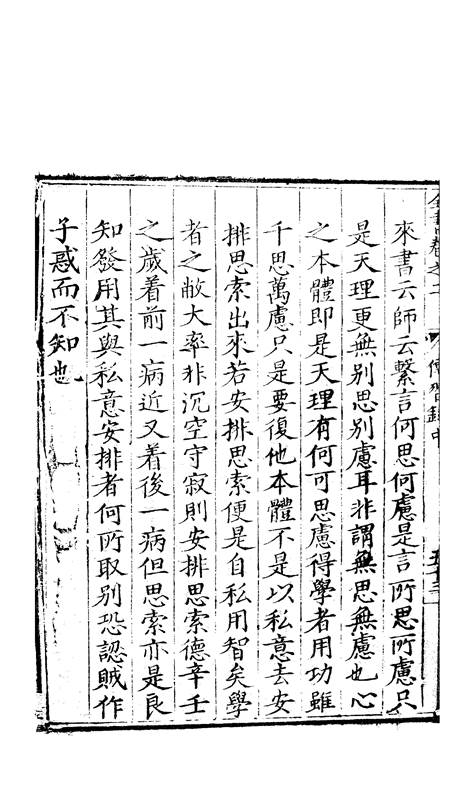 全書卷之二 傳習錄中 五十三
來書云師云繫言何思何慮是言所思所慮只
是天理更無別思別慮耳非謂無思無慮也心
之本體即是天理有何可思慮得學者用功雖
千思萬慮只是要復他本體不是以私意去安
排思索出來若安排思索便是自私用智矣學
者之敝大率非沉空守寂則安排思索德辛壬
之歲着前一病近又着後一病但思索亦是良
知發用其與私意安排者何所取別恐認賊作
子惑而不知也